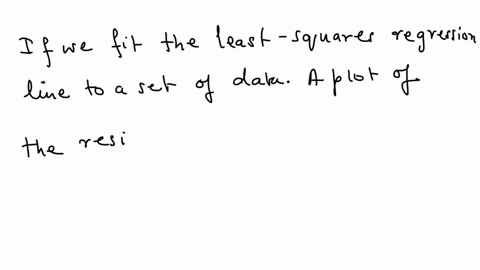 If we fit the least-squares regression
line to a set of data. A plot of
the resi